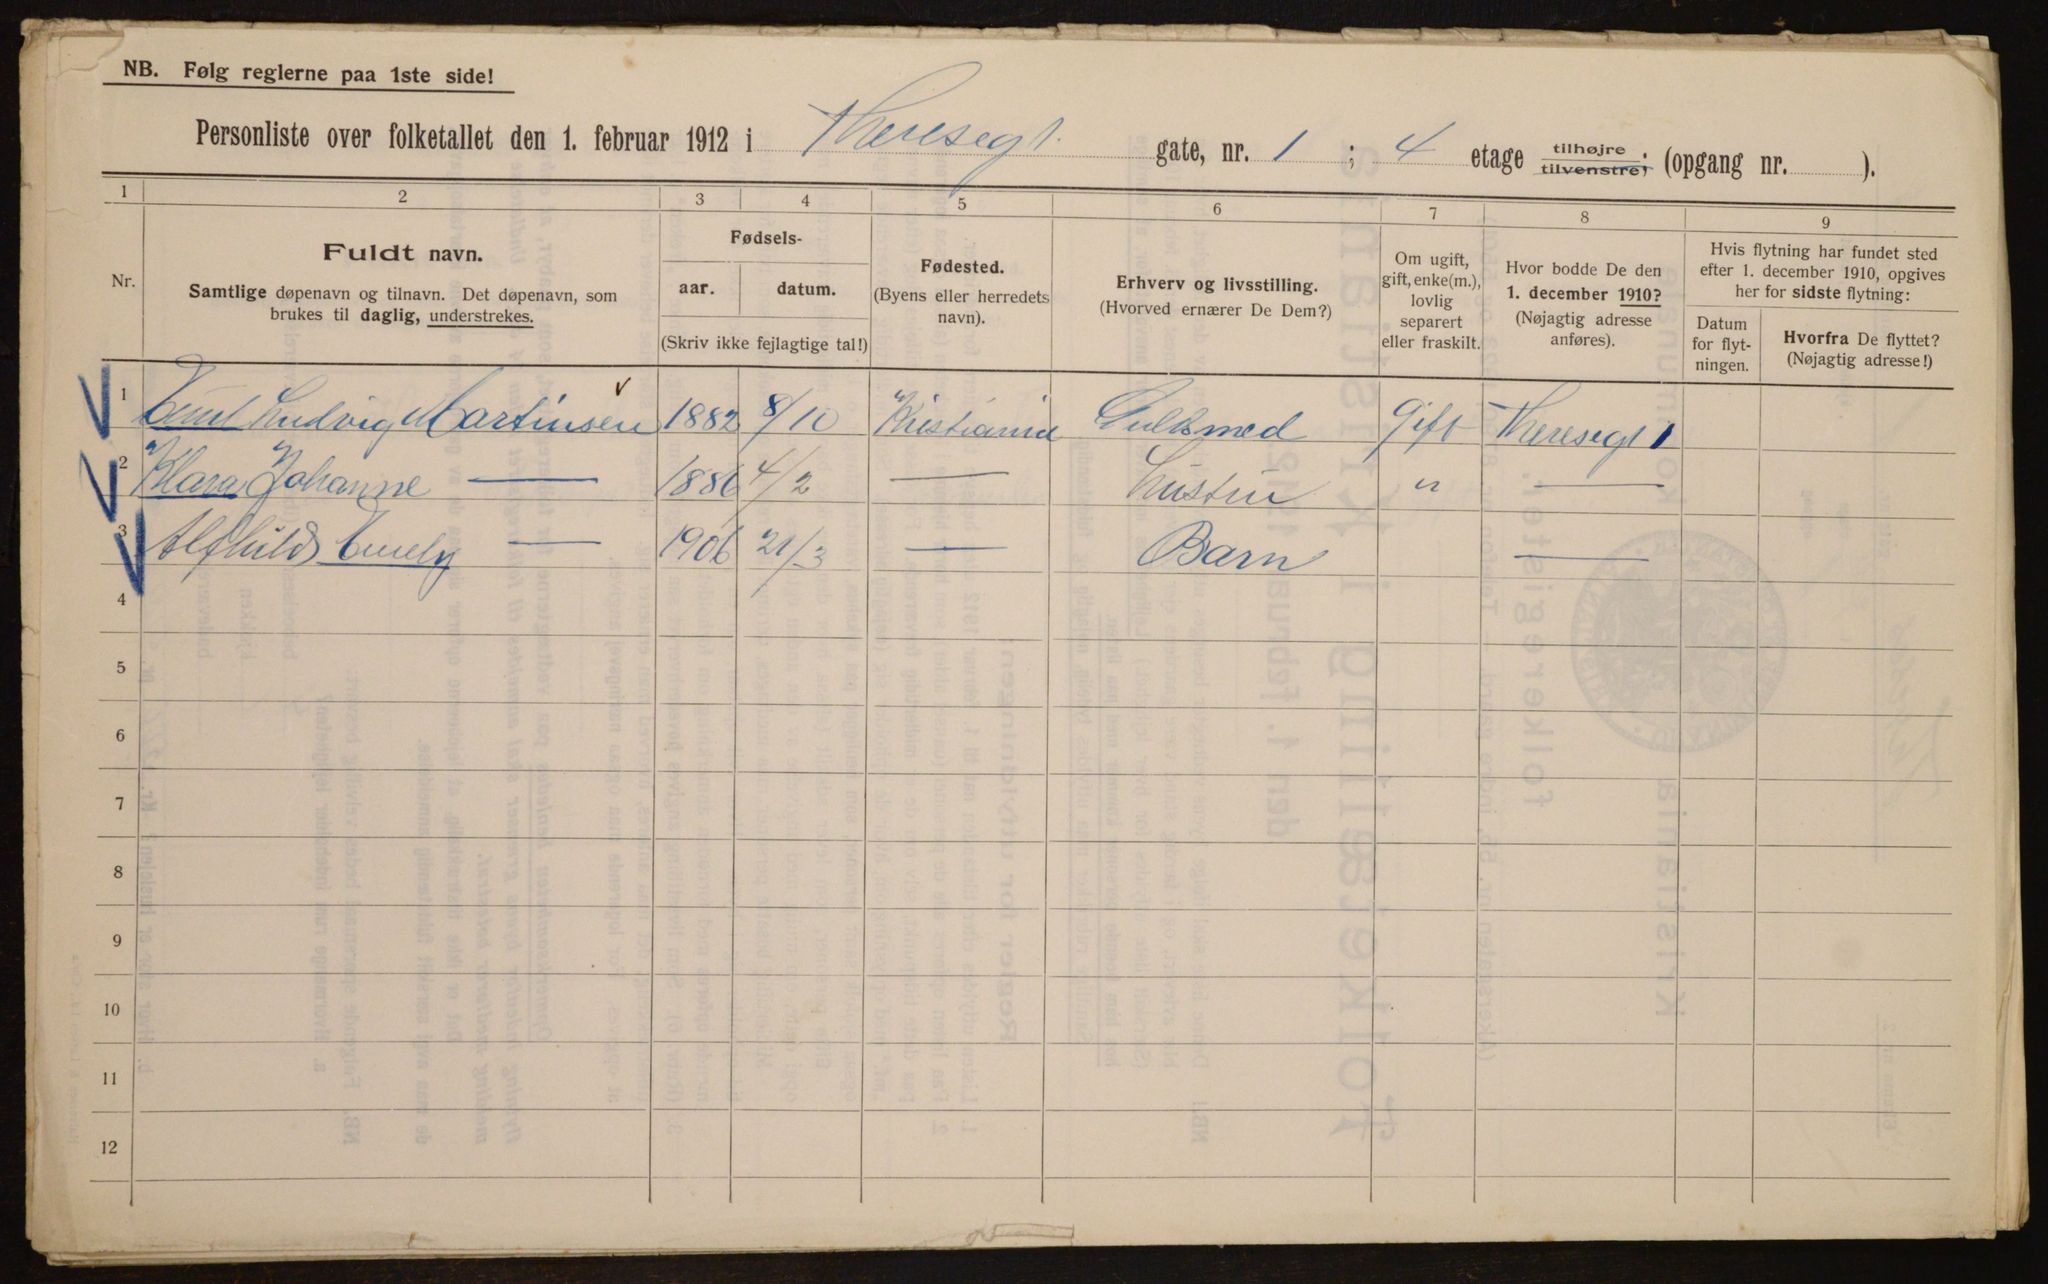 NB. Følg reglerne paa 1ste side!
Personliste over folketallet den 1. februar 1912 i Theresegt. gate, nr. 1 ; 4 etage tilhøjre tilvenstre; (opgang nr. ).
1 2 3 4 5 6 7 8 9
Nr.
Fuldt navn.
Samtlige døpenavn og tilnavn. Det døpenavn, som
brukes til daglig, understrekes.
Fødsels-
aar. datum.
(Skriv ikke fejlagtige tal!)
Fødested.
(Byens eller herredets
navn).
Erhverv og livsstilling.
(Hvorved ernærer De Dem?)
Om ugift,
gift, enke(m.),
lovlig
separert
eller fraskilt.
Hvor bodde De den
1. december 1910?
(Nøjagtig adresse
anføres).
Hvis flytning har fundet sted
efter 1. december 1910, opgives
her for sidste flytning:
Datum
for flyt-
ningen.
Hvorfra De flyttet?
(Nøjagtig adresse!)
1 Ludvig Martinsen 1882 8/10 Kristiania Gullsmed Gift Theresegt 1
2 Klara Johanne — 1886 4/2 — Hustru " —
3 Alfhild Emely — 1906 21/3 — Barn —
4
5
6
7
8
9
10
11
12